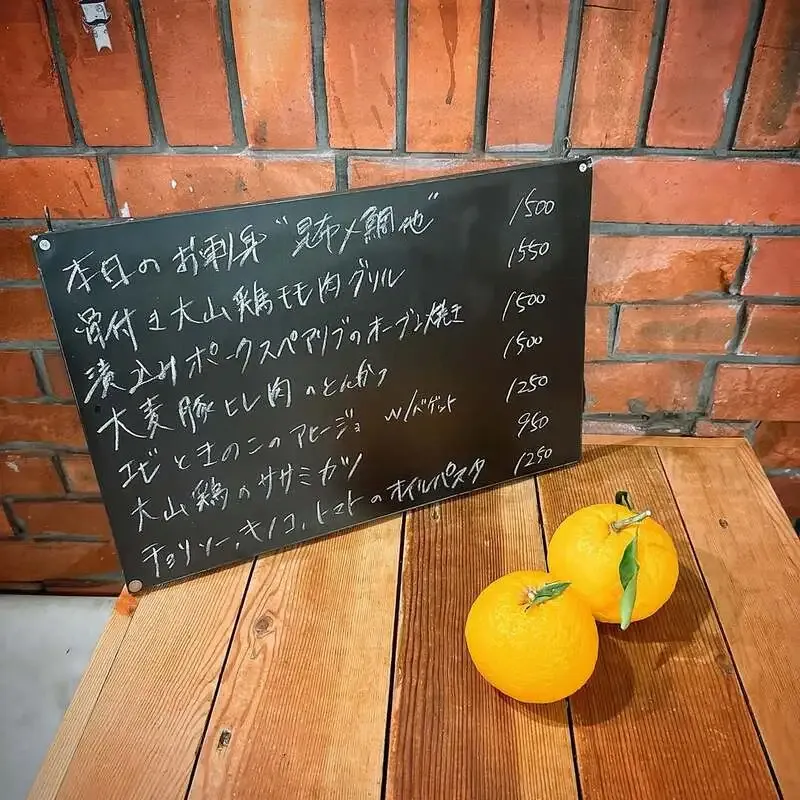 本日のお刺身 "昆布〆鯛 他" 1500
骨付き大山鶏モモ肉グリル 1550
漬込みポークスペアリブのオーブン焼き 1500
大麦豚ヒレ肉のとんかつ 1500
エビときのこのアヒージョ w/バゲット 1250
大山鶏のササミカツ 950
チョリソー、キノコ、トマトのオイルパスタ 1250